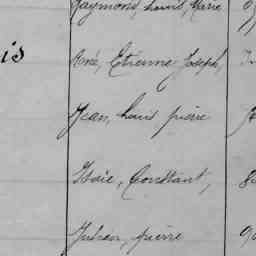 Raymond, Louis, Marie
is
René, Etienne Joseph,
Jean, Louis pierre
Isaïe, Constant,
Julien, pierre